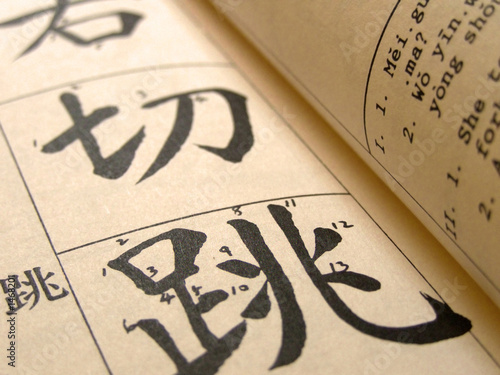 切
跳
1 2 3 4 5 6 8 9 10 11 12 13
跳
I. 1. Měi.gu
.ma?
2. Wǒ yīn.w
yòng shǒ
II. 1. She te
for
2.